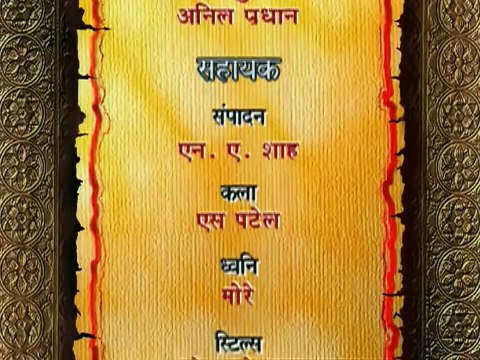 अनिल प्रधान
सहायक
संपादन
एन. ए. शाह
कला
एस पटेल
ध्वनि
मोरे
स्टिल्स